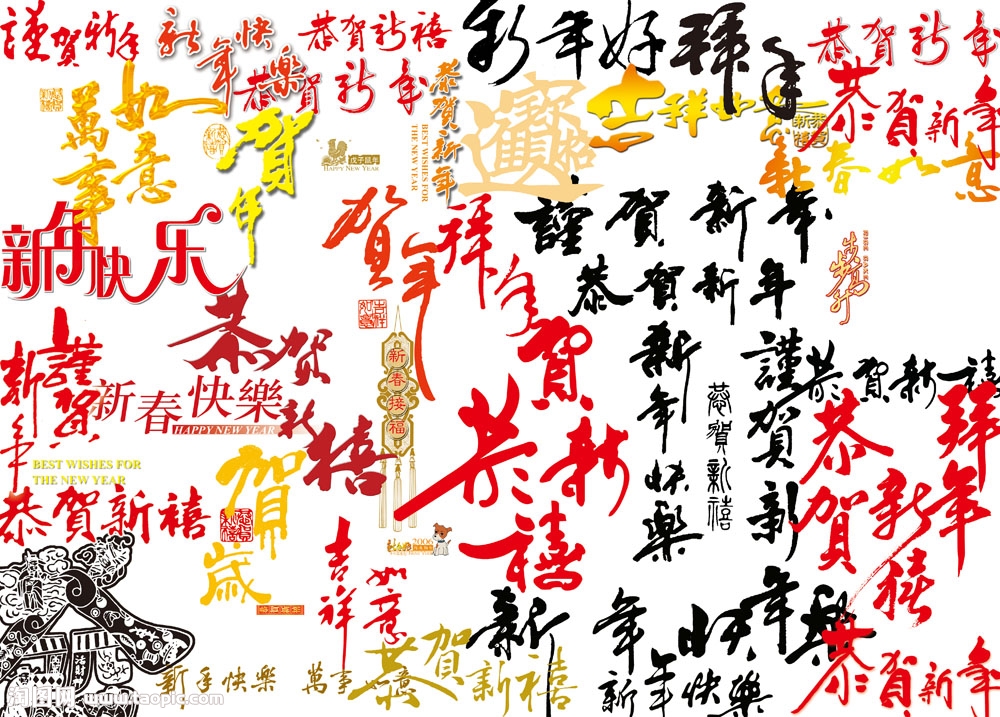 謹賀新年
新年快樂
恭賀新禧
恭賀新年
新年好
拜年
恭賀新年
萬事如意
賀年
戊子鼠年
HAPPY NEW YEAR
恭賀新年
BEST WISHES FOR
THE NEW YEAR
吉祥如意
恭賀新禧
恭賀新年
新春如意
謹賀新年
恭賀新年
新年快乐
賀年
吉祥如意
拜年
步步高升
恭賀新禧
新春快樂
HAPPY NEW YEAR
謹賀新年
BEST WISHES FOR
THE NEW YEAR
新春接福
恭賀新禧
新年快樂
恭賀新禧
謹賀新年
恭賀新禧
恭賀新禧
拜年
恭賀新禧
賀歲
2006
吉祥如意
新年快樂
恭賀新禧
新年快樂
萬事如意
新年快樂
恭賀新年
淘图网 www.taopic.com